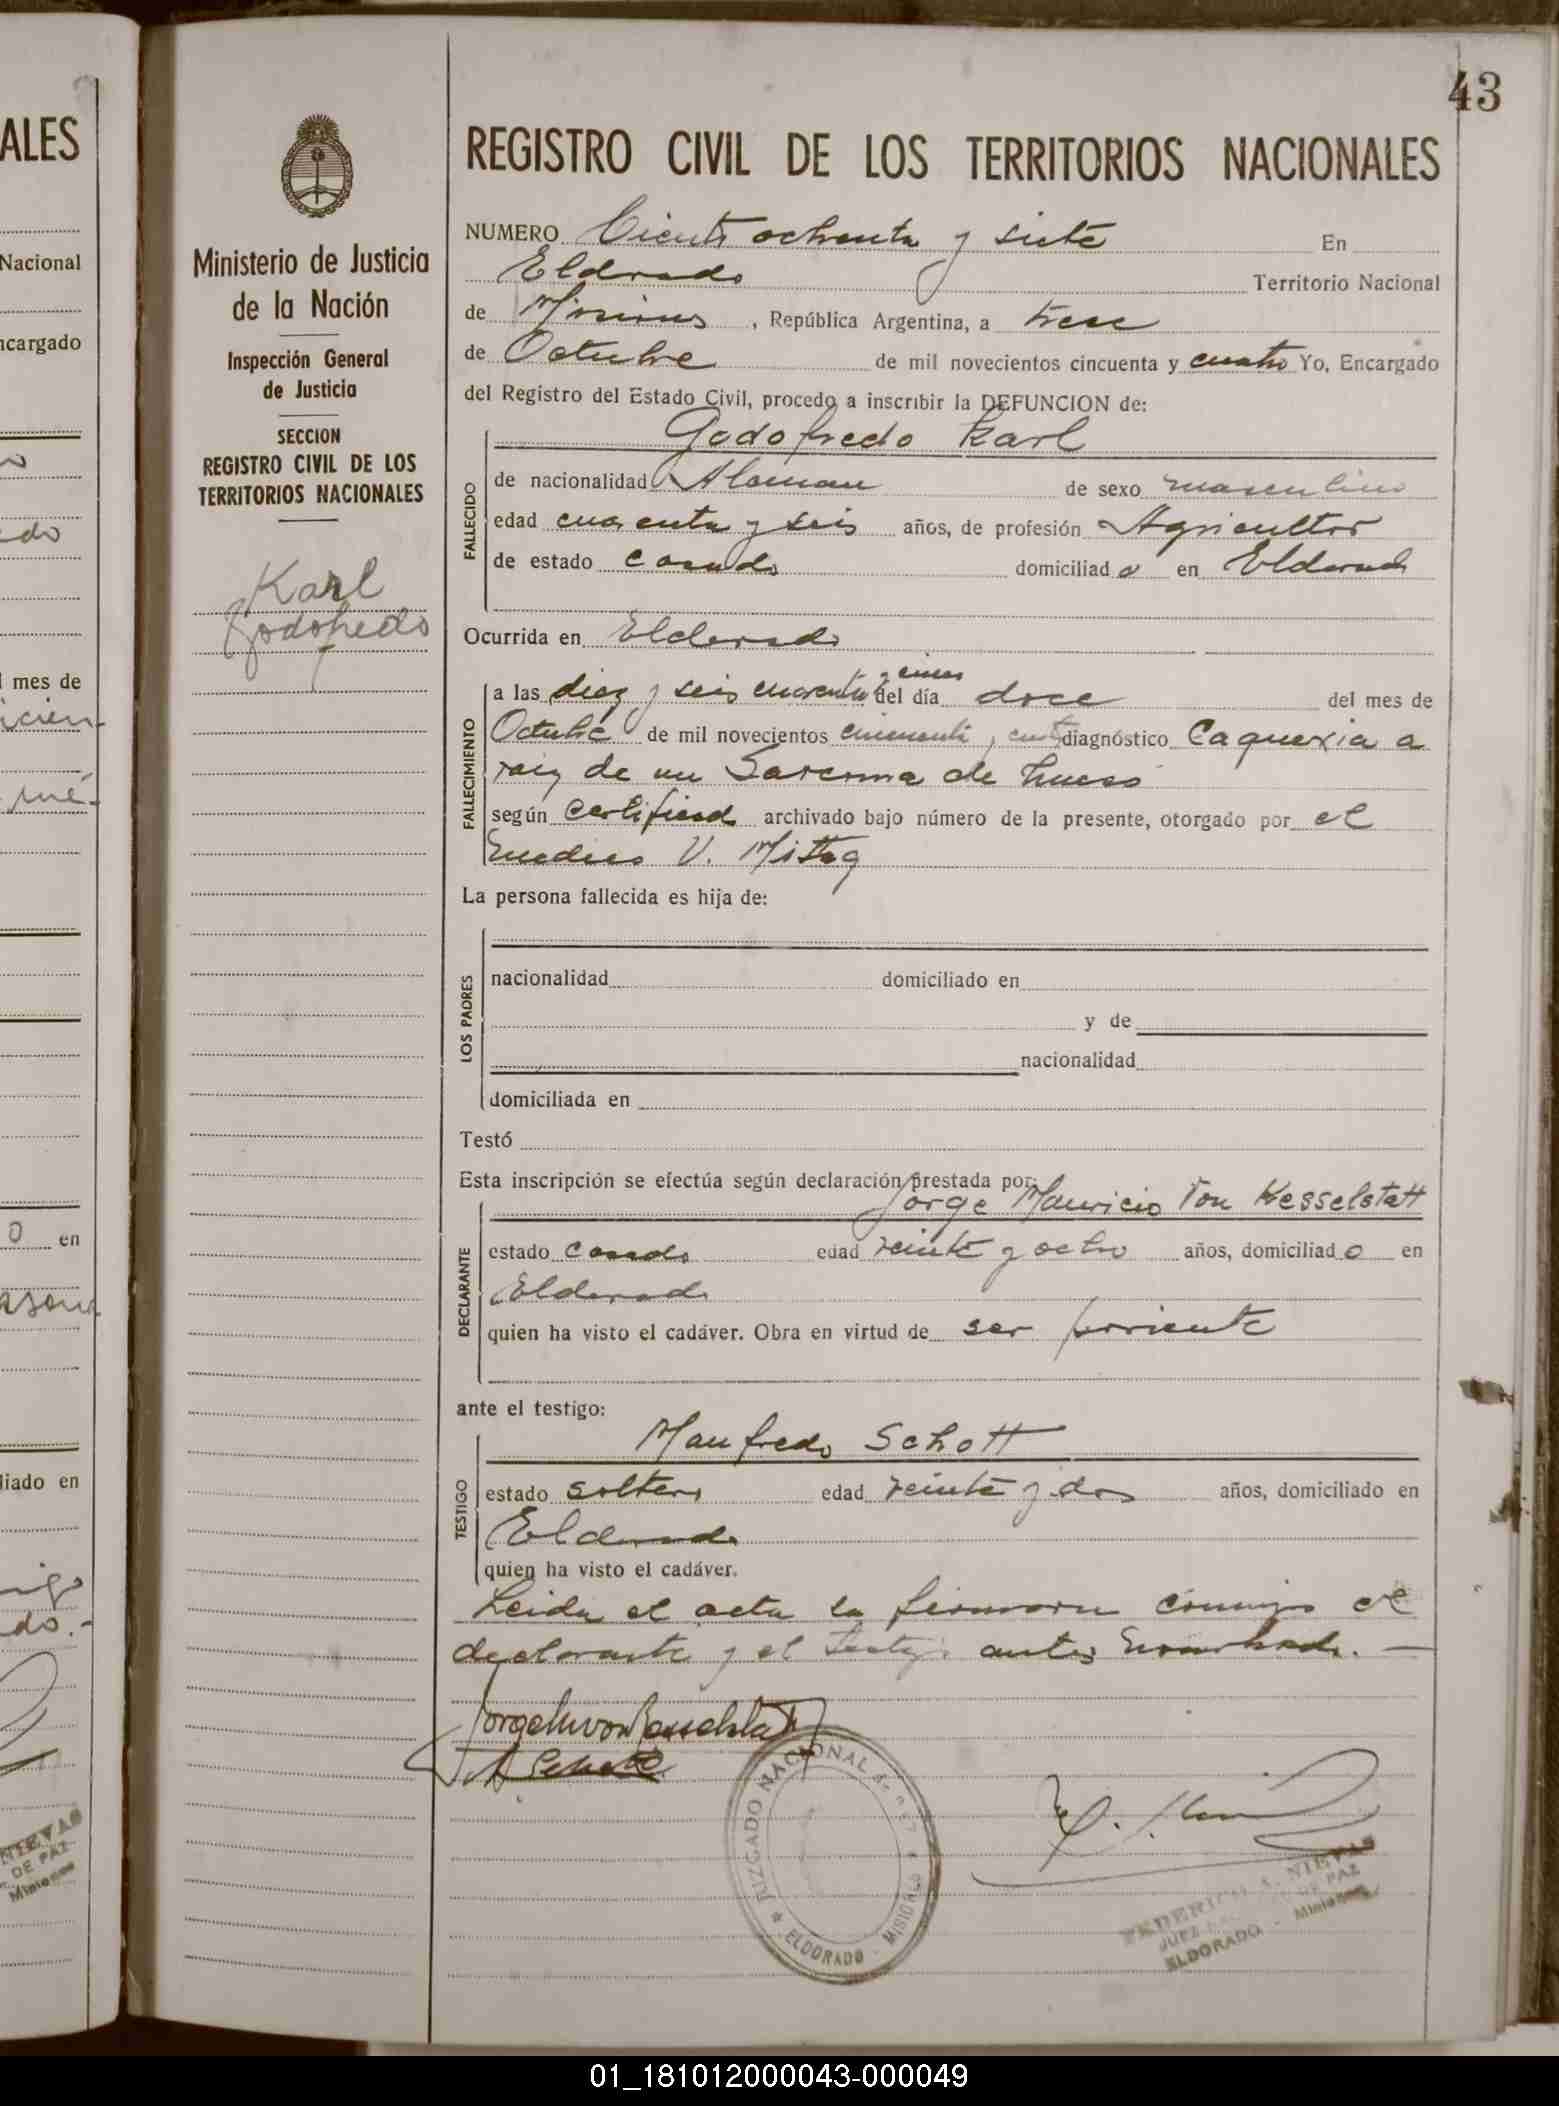 43
REGISTRO CIVIL DE LOS TERRITORIOS NACIONALES
Ministerio de Justicia
de la Nación
Inspección General
de Justicia
SECCION
REGISTRO CIVIL DE LOS
TERRITORIOS NACIONALES
Karl
Godofredo
NUMERO Ciento ochenta y siete En
Eldorado Territorio Nacional
de Misiones, República Argentina, a trece
de Octubre de mil novecientos cincuenta y cuatro Yo, Encargado
del Registro del Estado Civil, procedo a inscribir la DEFUNCION de:
Godofredo Karl
FALLECIDO
de nacionalidad Aleman de sexo masculino
edad cuarenta y seis años, de profesión Agricultor
de estado casado domiciliado en Eldorado
Ocurrida en Eldorado
FALLECIMIENTO
y cinco
a las diez y seis cuarenta del día doce del mes de
Octubre de mil novecientos cincuenta y cuatro diagnóstico Caquexia a
raiz de un Sarcoma de hueso
según certificado archivado bajo número de la presente, otorgado por el
medico V. Mittag
La persona fallecida es hija de:
LOS PADRES
nacionalidad domiciliado en
y de
nacionalidad
domiciliada en
Testó
Esta inscripción se efectúa según declaración prestada por:
Jorge Mauricio Von Kesselstatt
DECLARANTE
estado casado edad veinte y ocho años, domiciliado en
Eldorado
quien ha visto el cadáver. Obra en virtud de ser pariente
ante el testigo:
Manfredo Schott
TESTIGO
estado soltero edad veinte y dos años, domiciliado en
Eldorado
quien ha visto el cadáver.
Leida el acta la firmaron conmigo el
declarante y el testigo antes nombrado.
Jorge M von Kesselstatt
M Schott
JUZGADO NACIONAL
ELDORADO - MISIONES
FEDERICO A. NIEVAS
JUEZ DE PAZ
ELDORADO - Misiones
ALES
Nacional
ncargado
do
mes de
icien-
mé-
o en
liado en
do.-
NIEVAS
DE PAZ
Misiones
01_181012000043-000049